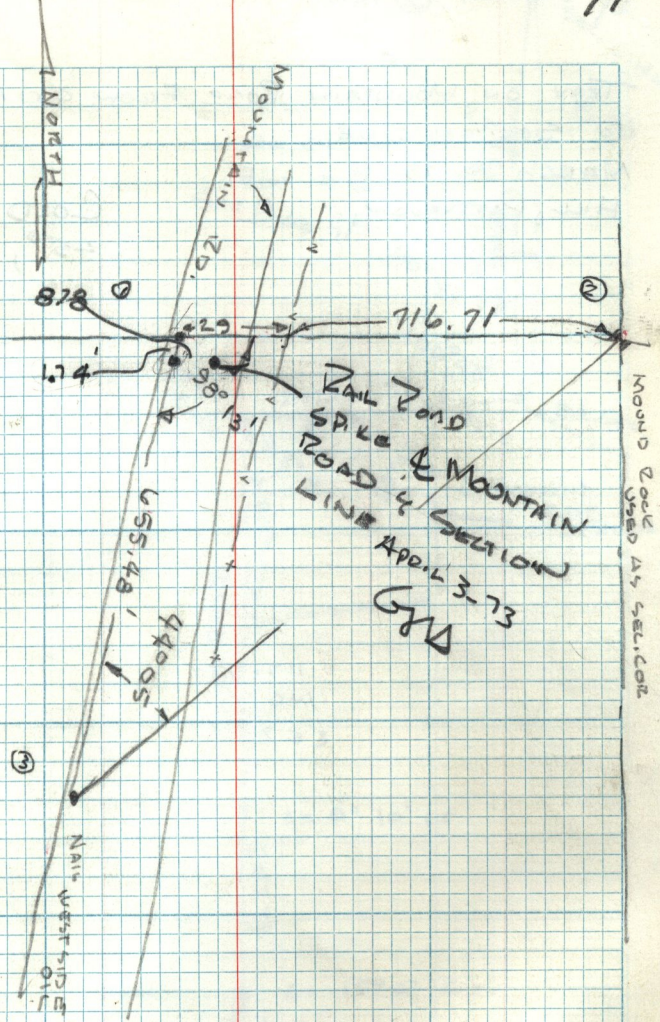 NORTH
MOUNTAIN RD.
878
①
29
716.71
②
1.74'
98° 13'
RAIL ROAD
SPIKE ℄ MOUNTAIN
ROAD & SECTION
LINE APRIL 3-73
MOUND ROCK
USED AS SEC. COR
655.48'
44°05
③
NAIL WEST SIDE
OIL